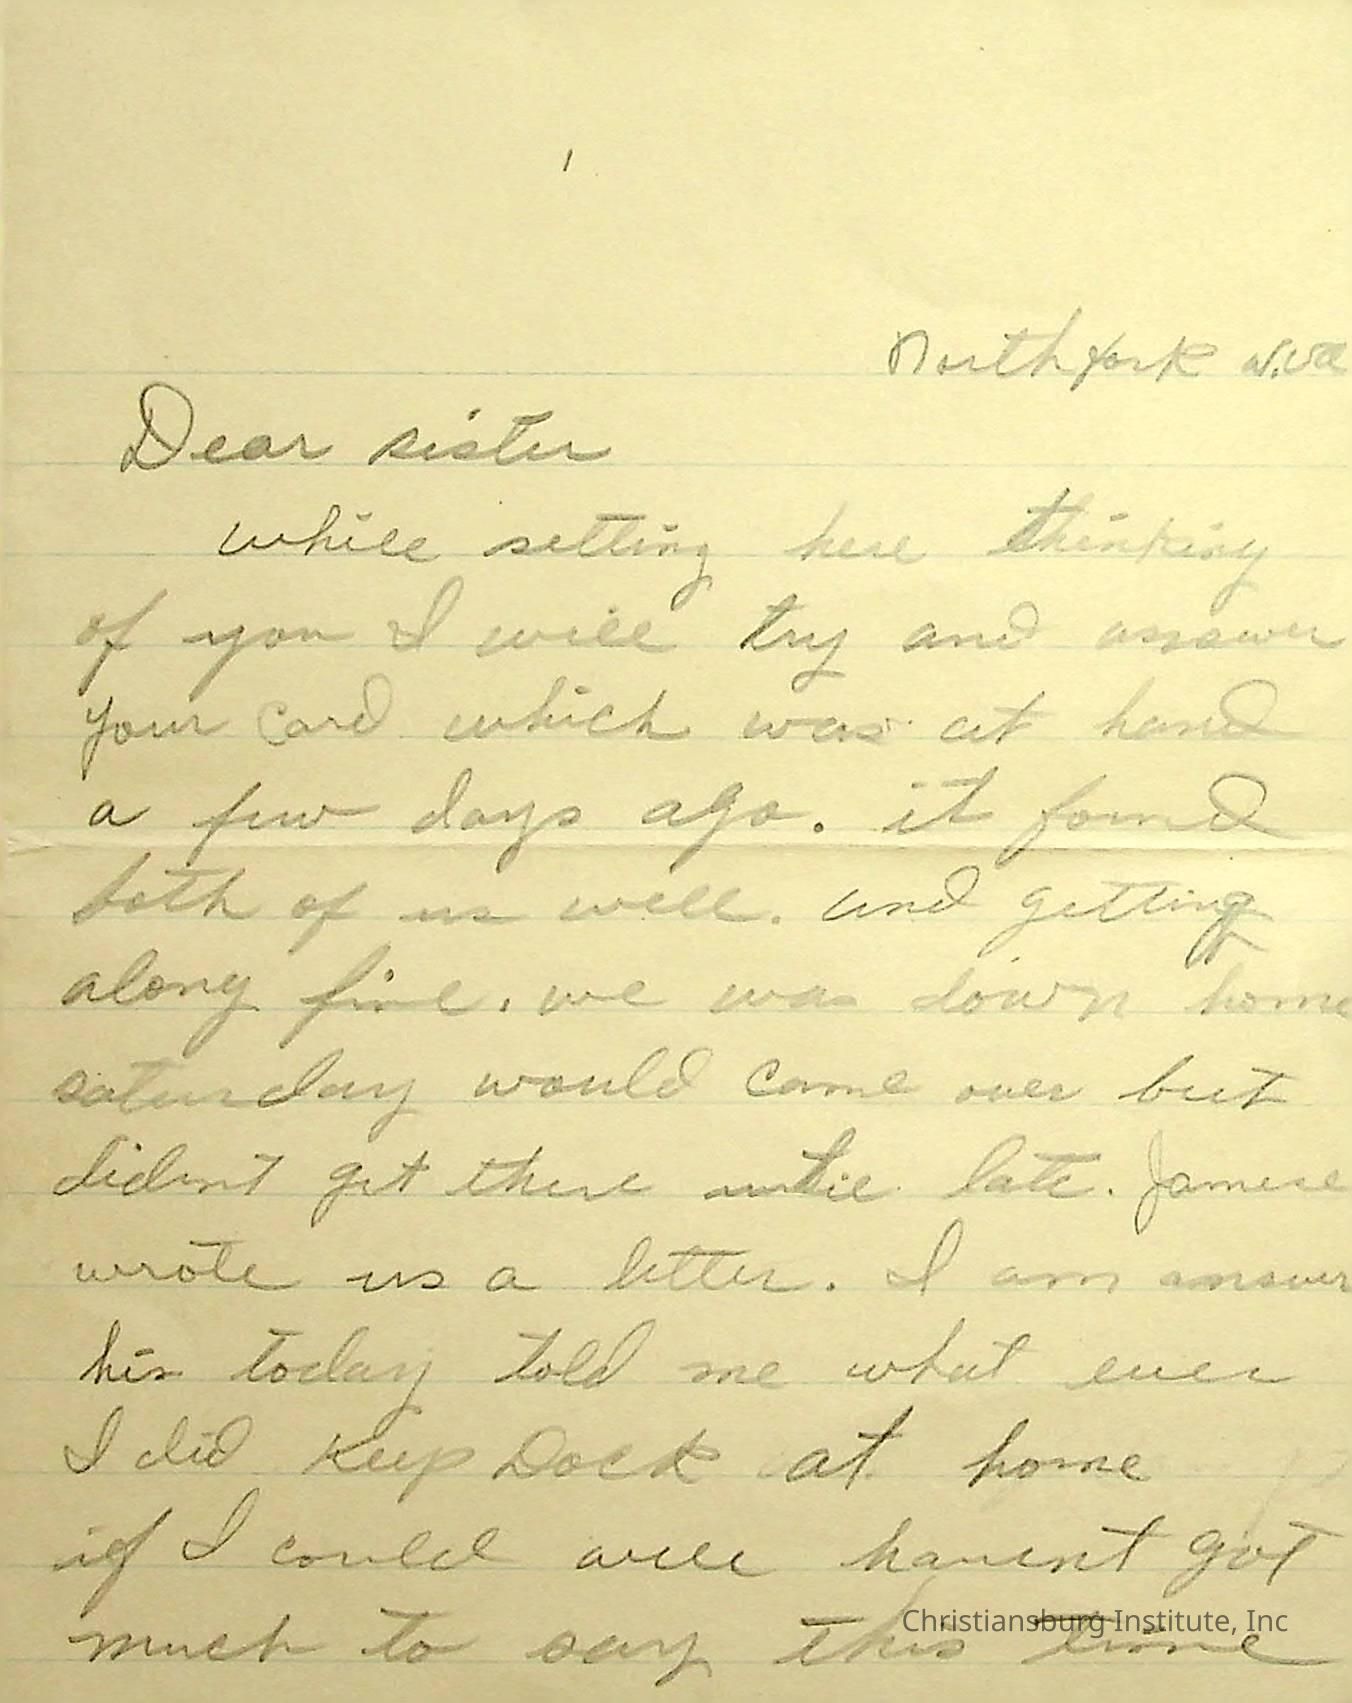 1
Northfork W.Va
Dear sister
while setting here thinking
of you I will try and answer
your card which was at hand
a few days ago. it found
both of us well. and getting
along fine. we was down home
saturday would came over but
didn't get there until late. Jamese
wrote us a letter. I am answer
his today told me what ever
I did keep Dock at home
if I could well havent got
much to say this time
Christiansburg Institute, Inc